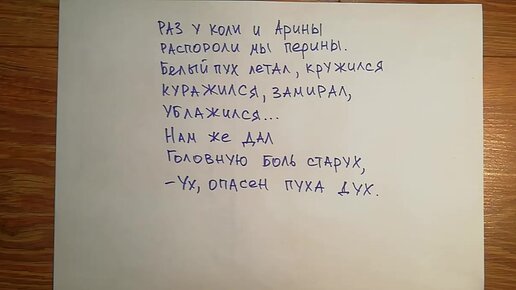 Раз у Коли и Арины
распороли мы перины.
Белый пух летал, кружился
куражился, замирал,
ублажился...
Нам же дал
головную боль старух,
- Ух, опасен пуха дух.